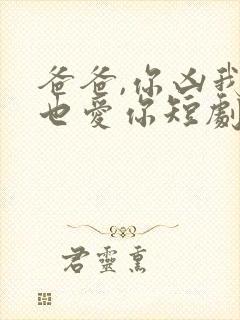 爸爸,你凶我
也愛你短劇
君靈熏